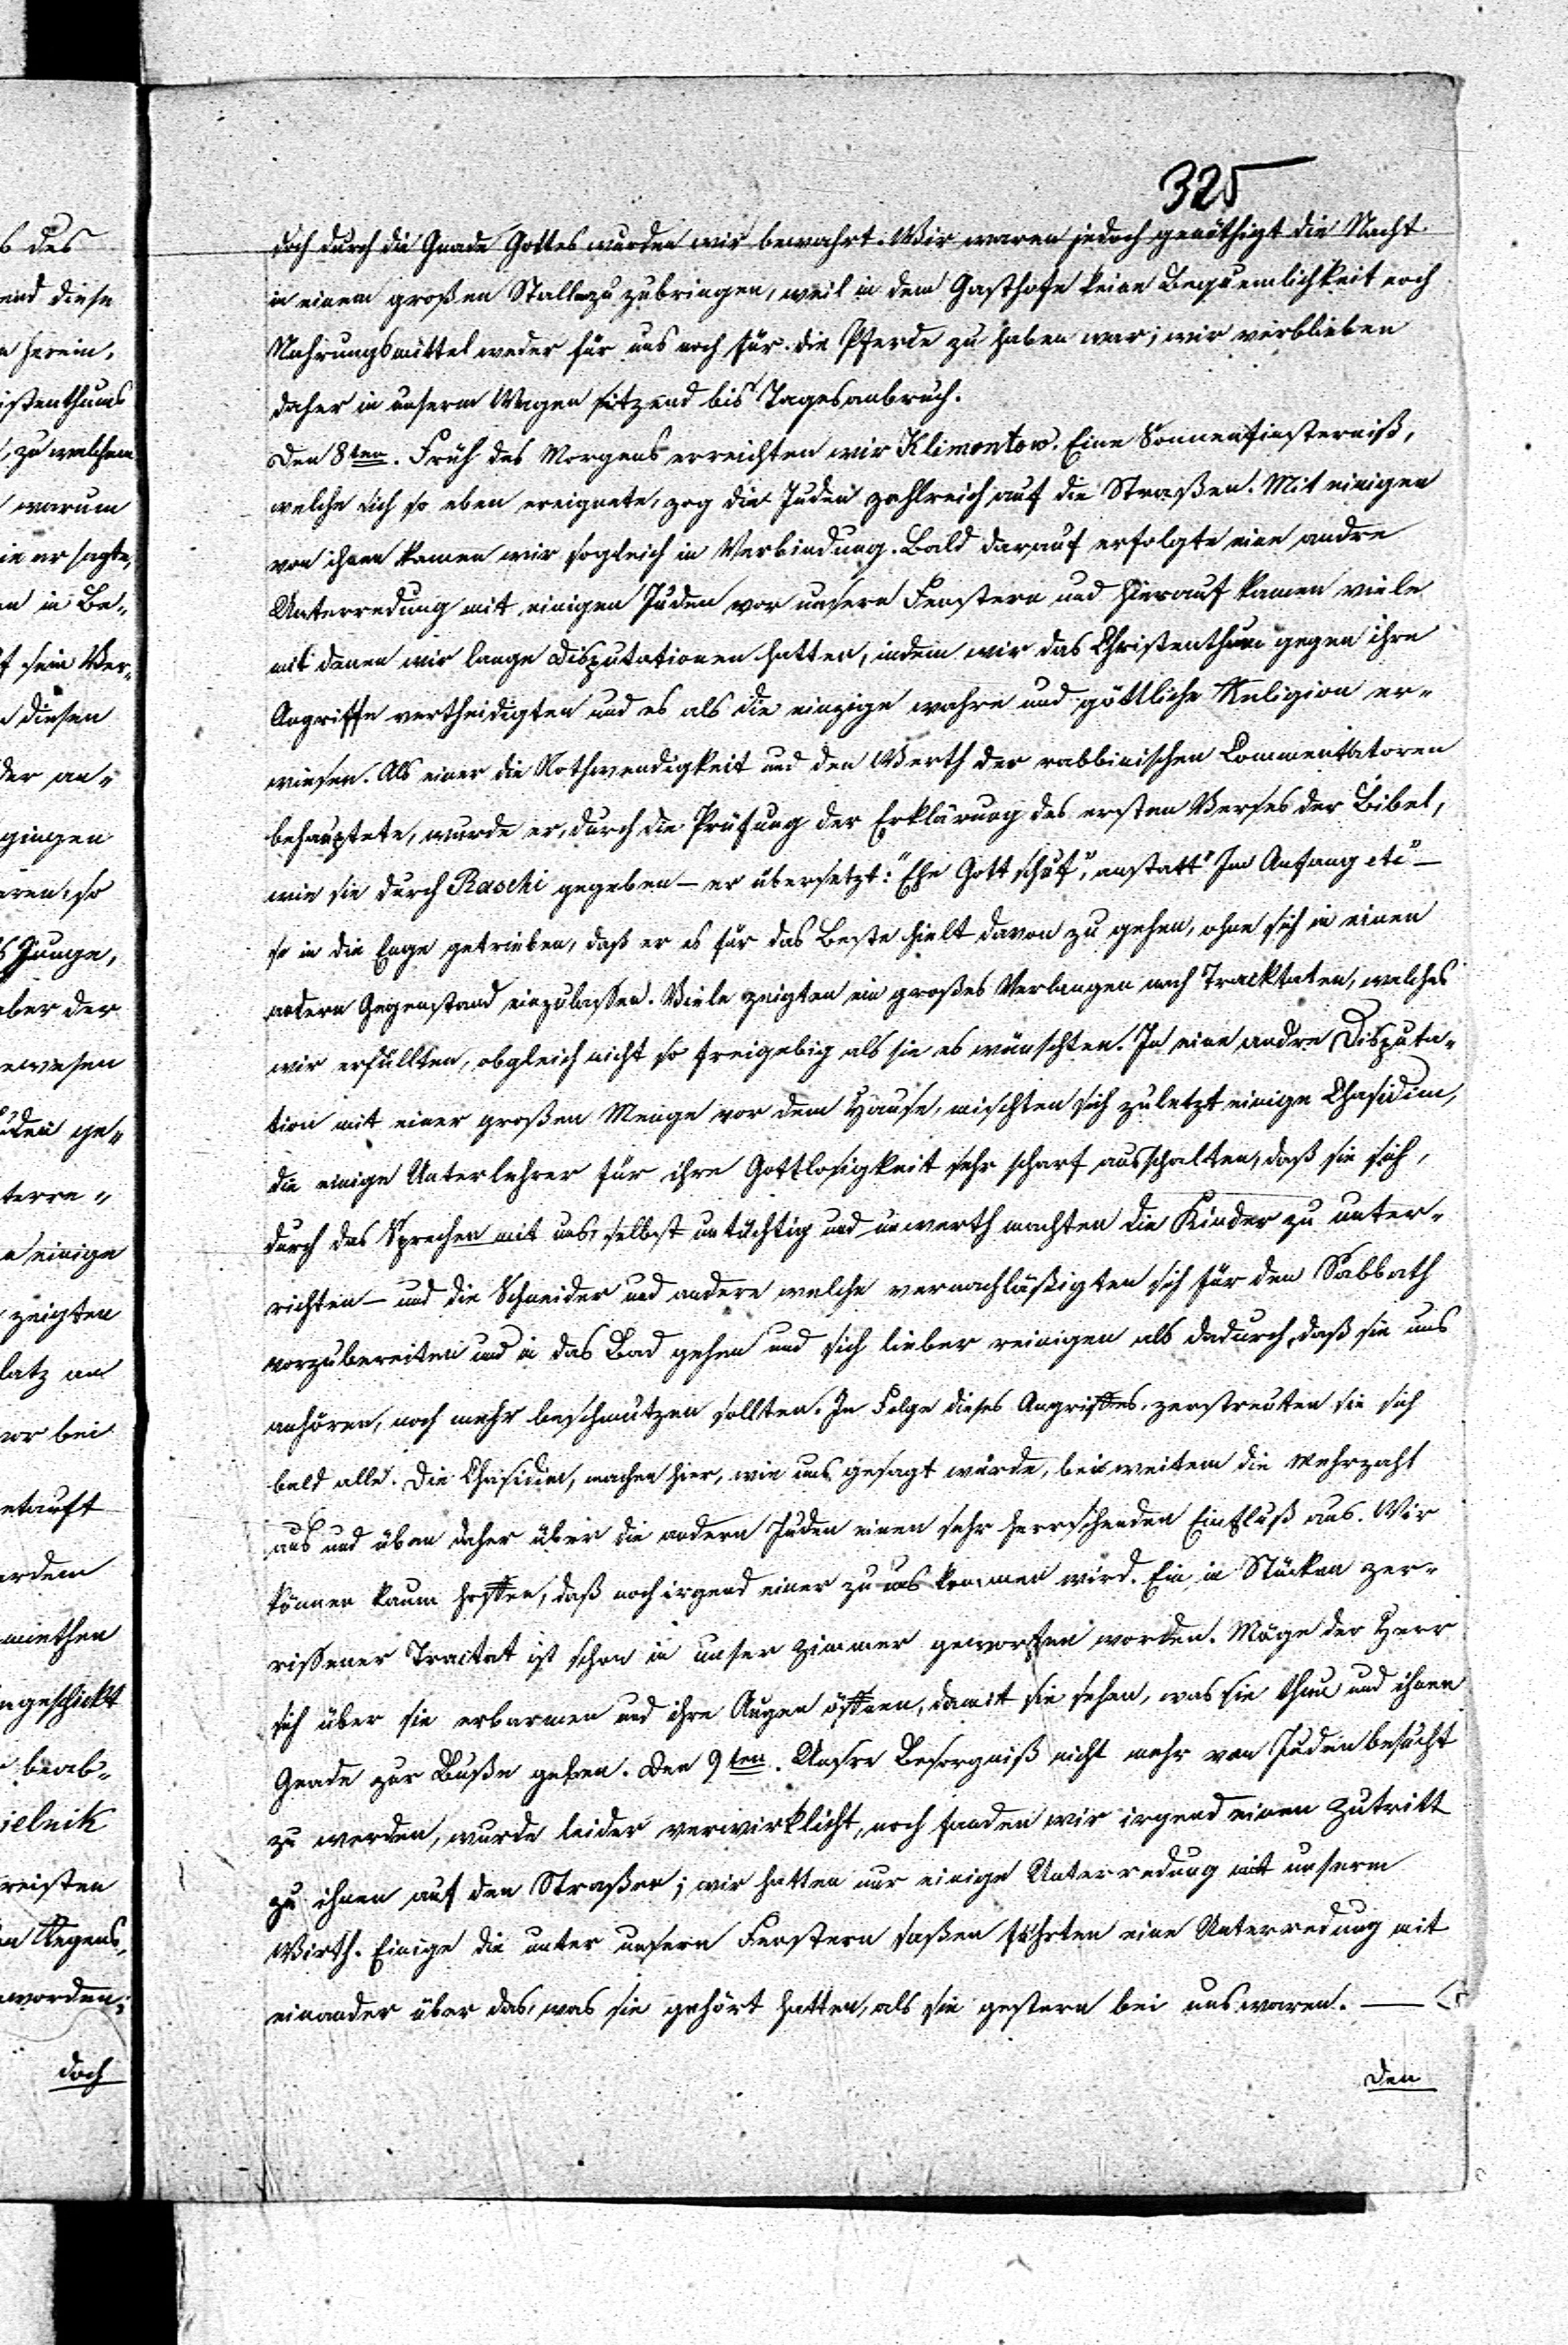 325
doch durch die Gnade Gottes wurden wir bewahrt. Wir waren jedoch genöthigt die Nacht
in einem großen Stalle zu zubringen, weil in dem Gasthofe keine Bequemlichkeit noch
Nahrungsmittel weder für uns noch für die Pferde zu haben war; wir verblieben
daher in unserm Wagen sitzend bis Tagesanbruch.
Den 8ten. Früh des Morgens erreichten wir Klimontow. Eine Sonnenfinsterniß,
welche sich so eben ereignete, zog die Juden zahlreich auf die Straßen. Mit einigen
von ihnen kamen wir sogleich in Verbindung. Bald darauf erfolgte eine andre
Unterredung mit einigen Juden vor unsern Fenstern und hierauf kamen viele
mit denen wir lange Disputationen hatten, indem wir das Christenthum gegen ihre
Angriffe vertheidigten und es als die einzige wahre und göttliche Religion er-
wiesen. Als einer die Nothwendigkeit und den Werth der rabbinischen Commentatoren
behauptete, wurde er, durch die Prüfung der Erklärung des ersten Verses der Bibel,
wie sie durch Raschi gegeben — er übersetzt: "Ehe Gott schuf", anstatt "Im Anfang etc" —
so in die Enge getrieben, daß er es für das Beste hielt davon zu gehen, ohne sich in einen
andern Gegenstand einzulassen. Viele zeigten ein großes Verlangen nach Tracktaten, welches
wir erfüllten, obgleich nicht so freigebig als sie es wünschten. In eine andre Disputa-
tion mit einer großen Menge vor dem Hause, mischten sich zuletzt einige Chasidim,
die einige Unterlehrer für ihre Gottlosigkeit sehr scharf ausschalten, daß sie sich,
durch das Sprechen mit uns, selbst untüchtig und unwerth machten die Kinder zu unter-
richten — und die Schneider und andere welche vernachläßigten sich für den Sabbath
vorzubereiten und in das Bad gehen und sich lieber reinigen als dadurch, daß sie uns
anhören, noch mehr beschmutzen sollten. In Folge dieses Angriffes, zerstreuten sie sich
bald alle. Die Chasidim, machen hier, wie uns gesagt wurde, bei weitem die Mehrzahl
aus und üben daher über die andern Juden einen sehr herrschenden Einfluß aus. Wir
können kaum hoffen, daß noch irgend einer zu uns kommen wird. Ein in Stücken zer-
rissener Tractat ist schon in unser Zimmer geworfen worden. Möge der Herr
sich über sie erbarmen und ihre Augen öffnen, damit sie sehen, was sie thun und ihnen
Gnade zur Buße geben. Den 9ten. Unsre Besorgniß nicht mehr von Juden besucht
zu werden, wurde leider verwirklicht, noch fanden wir irgend einen Zutritt
zu ihnen auf den Straßen; wir hatten nur einige Unterredung mit unserm
Wirth. Einige die unter unsern Fenstern saßen führten eine Unterredung mit
einander über das, was sie gehört hatten, als sie gestern bei uns waren. —
Den